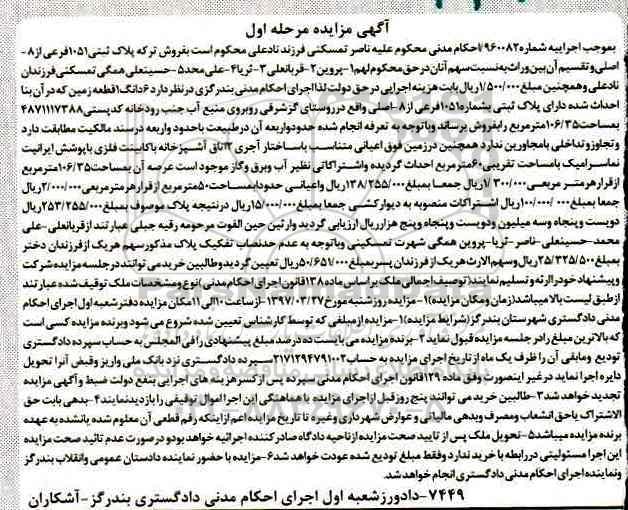 آگهی مزایده مرحله اول
بموجب اجراییه شماره ۹۶۰۰۸۲ احکام مدنی محکوم علیه ناصر تمسکنی فرزند نادعلی محکوم است بفروش ترکه پلاک ثبتی ۱۰۵۱ فرعی از ۸-
اصلی و تقسیم آن بین وراث به نسبت سهم آنان در حق محکوم لهم ۱-پروین ۲-قربانعلی ۳-ثریا ۴-علی محمد ۵-حسینعلی همگی تمسکنی فرزندان
نادعلی و همچنین مبلغ ۱/۵۰۰/۰۰۰ ریال بابت هزینه اجرایی در حق دولت لذا اجرای احکام مدنی بندرگزی در نظر دارد ۶ دانگ ۱ قطعه زمین که در آن بنا
احداث شده دارای پلاک ثبتی بشماره ۱۰۵۱ فرعی از ۸-اصلی واقع در روستای گزشرقی روبروی منبع آب جنب رودخانه کدپستی ۴۸۷۱۱۱۷۳۸۸
بمساحت ۱۰۶/۳۵ مترمربع را بفروش برساند و باتوجه به تعرفه انجام شده حدود اربعه آن در طبیعت با حدود واربعه در سند مالکیت مطابقت دارد
و تجاوز و تداخلی با مجاورین ندارد همچنین در زمین فوق اعیانی متناسب با ساختار آجری ۲ اتاق آشپزخانه با کابینت فلزی با پوشش ایرانیت
نما سرامیک با مساحت تقریبی ۶۰ مترمربع احداث گردیده و اشتراکاتی نظیر آب و برق و گاز موجود است عرصه آن بمساحت ۱۰۶/۳۵ مترمربع
از قرار هر متر مربعی ۱/۳۰۰/۰۰۰ ریال جمعا بمبلغ ۱۳۸/۲۵۵/۰۰۰ ریال و اعیانی حدودا بمساحت ۵۰ مترمربع از قرار هر مترمربعی ۲/۰۰۰/۰۰۰ ریال
بمبلغ ۱۰۰/۰۰۰/۰۰۰ ریال اشتراکات منصوبه به دیوارکشی جمعا بمبلغ ۱۵/۰۰۰/۰۰۰ ریال در نتیجه پلاک موصوف بمبلغ ۲۵۳/۲۵۵/۰۰۰ ریال
دویست و پنجاه وسه میلیون و دویست و پنجاه و پنج هزار ریال ارزیابی گردید وارثین حین الفوت مرحومه رقیه جبلی عبارتند از قربانعلی-علی
محمد-حسینعلی-ناصر-ثریا-پروین همگی شهرت تمسکینی و باتوجه به عدم حد نصاب تفکیک پلاک مذکور سهم هریک از فرزندان دختر
بمبلغ ۲۵/۳۲۵/۵۰۰ ریال و سهم الارث هریک از فرزندان پسر بمبلغ ۵۰/۶۵۱/۰۰۰ ریال تعیین گردید و طالبین خرید می توانند در جلسه مزایده شرکت
و پیشنهاد خود را ارئه و تسلیم نمایند (توصیف اجمالی ملک بر اساس ماده ۱۳۸ قانون اجرای احکام مدنی) نوع و مشخصات ملک توقیف شده عبارتند
از طبق لیست بالا میباشد (زمان و مکان مزایده) ۱-مزایده روز شنبه مورخ ۱۳۹۷/۰۳/۲۷-از ساعت ۱۰ الی ۱۱ مکان مزایده دفتر شعبه اول اجرای احکام
مدنی دادگستری شهرستان بندرگز (شرایط مزایده) ۱-مزایده از مبلغی که توسط کارشناس تعیین شده شروع می شود و برنده مزایده کسی است
که بالاترین مبلغ را در جلسه مزایده قبول نماید ۲-برنده مزایده می بایست ده درصد مبلغ پیشنهادی را فی المجلس به حساب سپرده دادگستری
تودیع و مابقی آن را ظرف یک ماه از تاریخ اجرای مزایده به حساب ۲۱۷۱۲۹۴۷۹۱۰۰۲ سپرده دادگستری نزد بانک ملی واریز و قبض آنرا تحویل
دایره اجرا نماید در غیر اینصورت بوفق ماده ۱۲۹ قانون اجرای احکام مدنی سپرده پس از کسر هزینه های اجرایی بنفع دولت ضبط و آگهی مزایده
تجدید خواهد شد ۳-طالبین خرید می توانند پنج روز قبل از اجرای مزایده با هماهنگی این اجرا اموال توقیفی را بازدید نمایند ۴-بدهی بابت حق
الاشتراک یا حق انشعاب و مصرف و بدهی مالیاتی و عوارض شهرداری و غیره تا تاریخ مزایده اعم از اینکه رقم قطعی آن معلوم شده یا نشده به عهده
برنده مزایده میباشد ۵-تحویل ملک پس از تایید صحت مزایده از ناحیه دادگاه صادر کننده اجرائیه خواهد بود و در صورت عدم تائید صحت مزایده
این اجرا مسئولیتی در رابطه با خرید ندارد و فقط مبلغ تودیع شده عودت خواهد شد ۶-مزایده با حضور نماینده دادستان عمومی و انقلاب بندرگز
و نماینده اجرای احکام مدنی دادگستری انجام خواهد شد.
۷۴۴۹-دادورز شعبه اول اجرای احکام مدنی دادگستری بندرگز-آشکاران